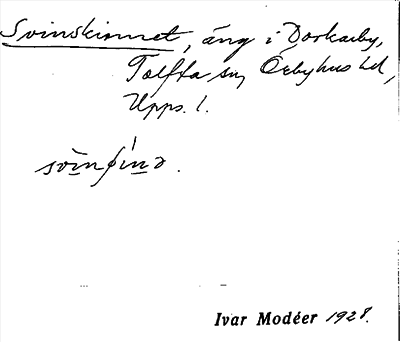 Svinskinnet, äng i Dorkarby,
Tolfta sn, Örbyhus hd,
Upps. l.
Ivar Modéer 1928.